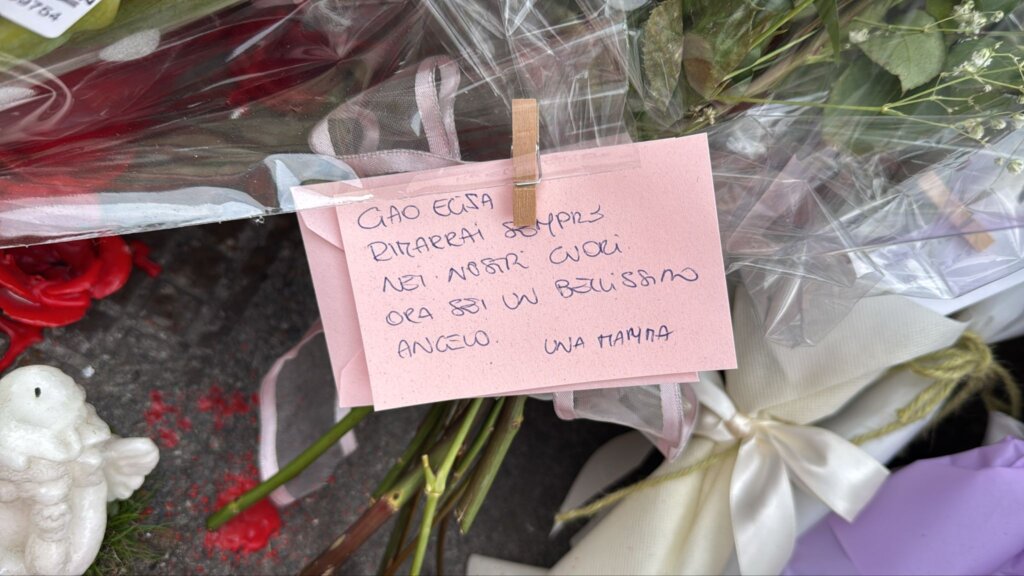 59754
CIAO ELISA
RIMARRAI SEMPRE
NEI NOSTRI CUORI
ORA SEI UN BELLISSIMO
ANGELO. UNA MAMMA